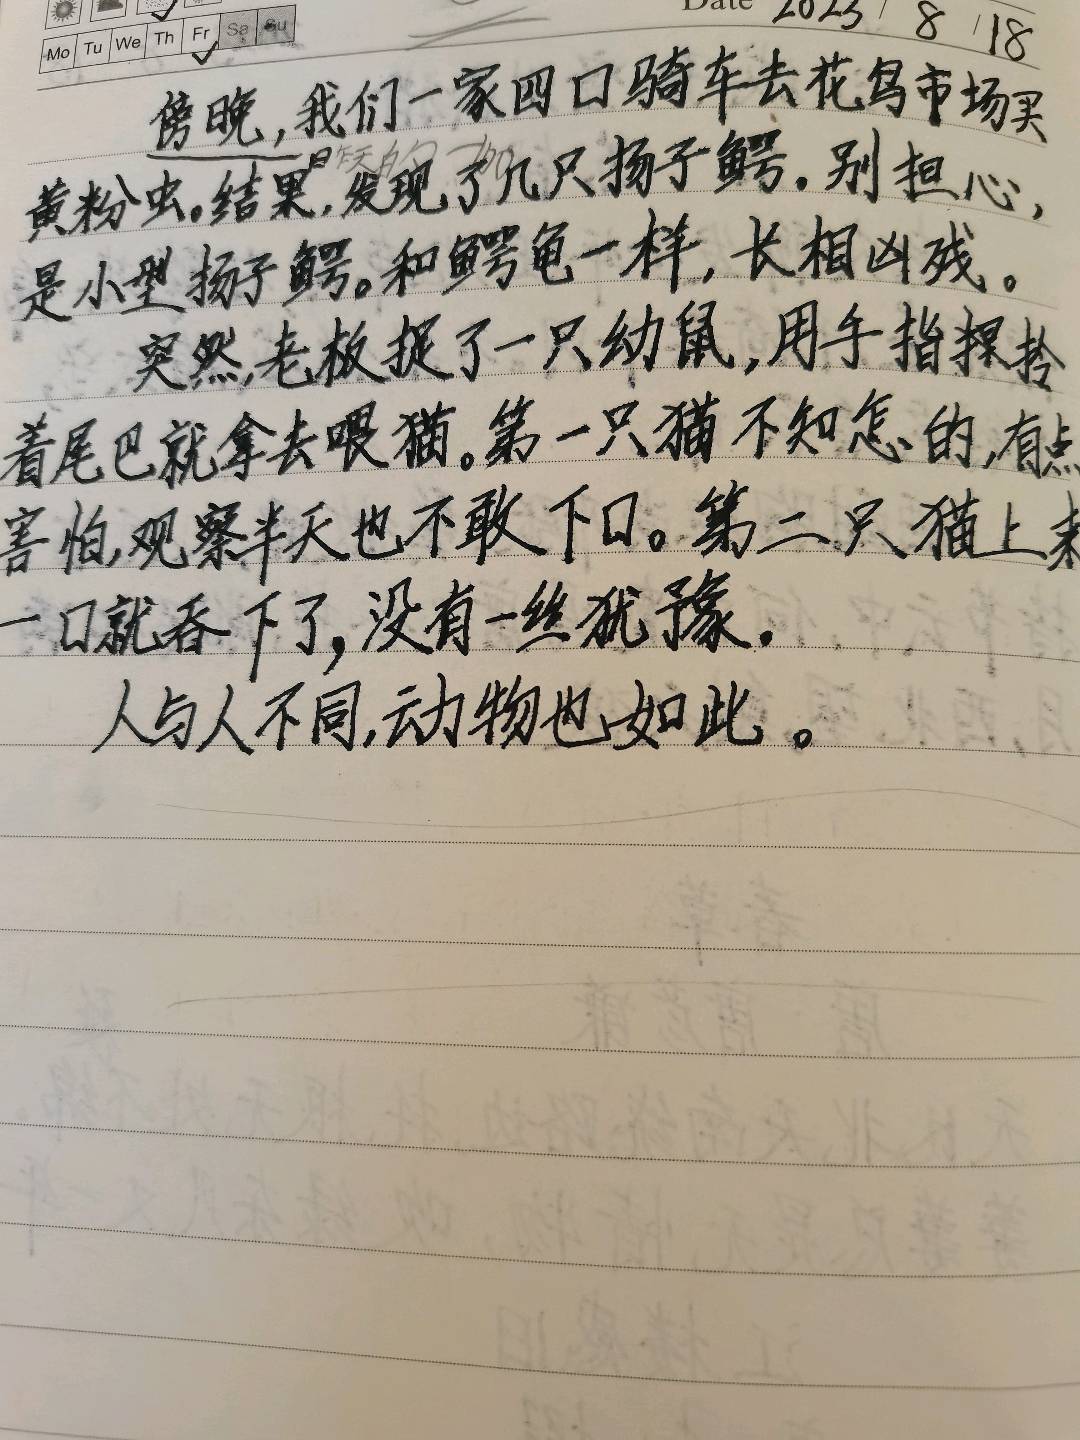 Date 2023/8/18
Mo Tu We Th Fr Sa Su
傍晚，我们一家四口骑车去花鸟市场买
黄粉虫。结果，发现了几只扬子鳄。别担心，
是小型扬子鳄。和鳄龟一样，长相凶残。
突然，老板捉了一只幼鼠，用手指捏拎
着尾巴就拿去喂猫。第一只猫不知怎的，有点
害怕，观察半天也不敢下口。第二只猫上来
一口就吞下了，没有一丝犹豫。
人与人不同，动物也如此。